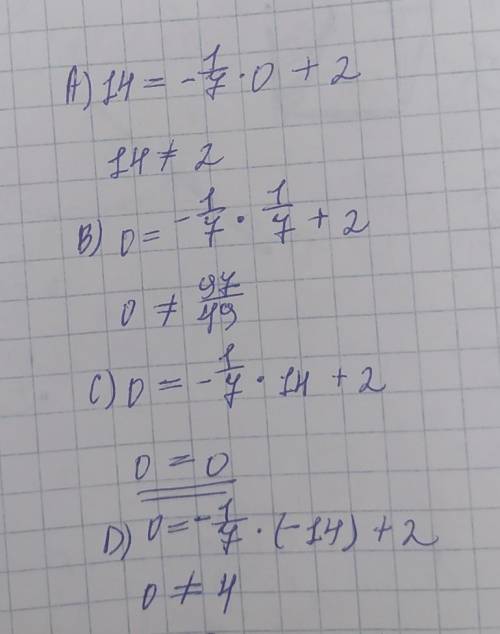 A) 14 = -1/7 · 0 + 2
14 ≠ 2
B) 0 = -1/7 · 1/7 + 2
0 ≠ 97/49
C) 0 = -1/7 · 14 + 2
0 = 0
D) 0 = -1/7 · (-14) + 2
0 ≠ 4